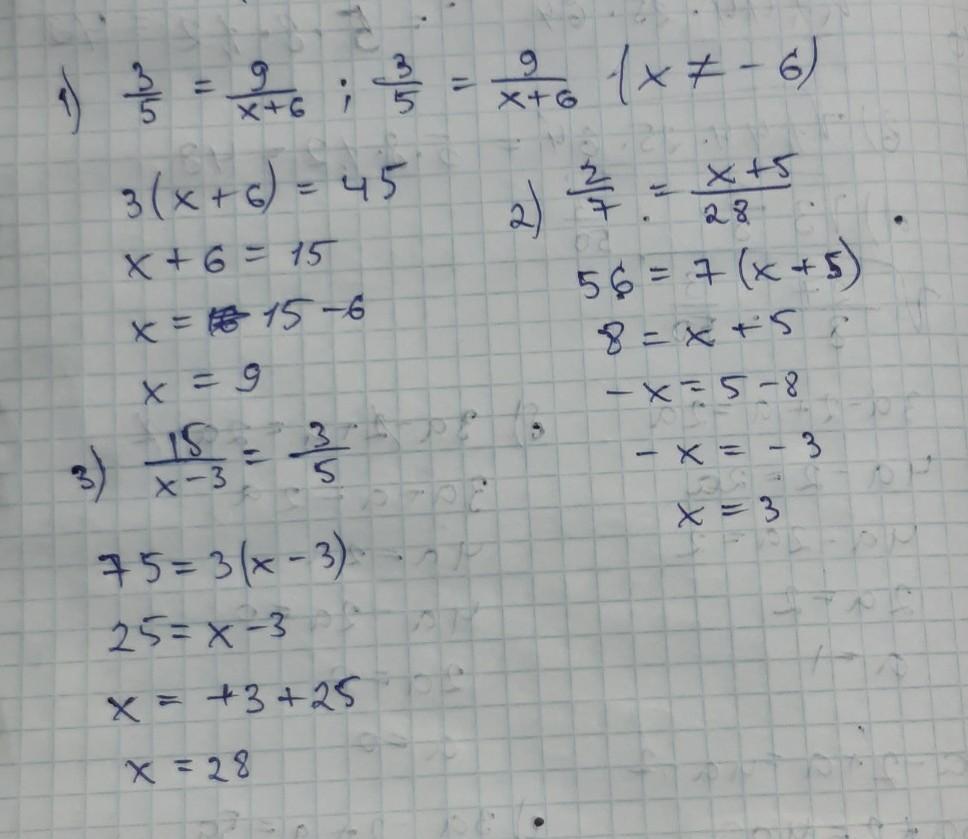 1) 3/5 = 9/(x+6) ; 3/5 = 9/(x+6) (x ≠ -6)
3(x+6) = 45
x + 6 = 15
x = 15 - 6
x = 9
2) 2/7 = (x+5)/28
56 = 7(x+5)
8 = x + 5
-x = 5 - 8
-x = -3
x = 3
3) 15/(x-3) = 3/5
75 = 3(x-3)
25 = x - 3
x = +3 + 25
x = 28